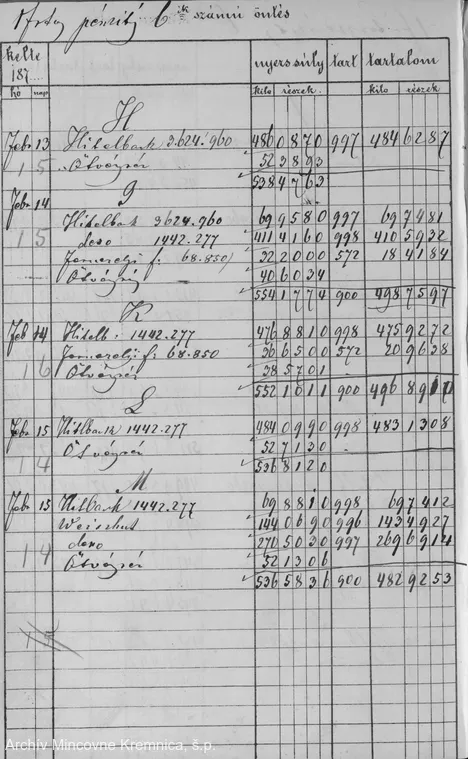 pénzítvj 6 ik számú öntés
kelte nyers súly tart tartalom
187
hó nap kilo részek kilo részek
H
Febr 13 Hitelbank 3.624.960 486 0870 997 484 6287
15 Ötvözrér 52 3893
538 4763
Febr 14
Hitelbk 3624.960 69 9580 997 69 7481
15 detto 1442.277 411 4160 998 410 5932
f. 68.850 32 2000 572 18 4184
Ötvözrér 40 6034
554 1774 900 498 7597
K
Feb 14 Hitelb. 1442.277 476 8810 998 475 9272
f. 68.850 36 6500 572 20 9638
16 Ötvözrér 38 5701
552 1011 900 496 8910
L
Febr 15 Hitlbank 1442.277 484 0990 998 483 1308
14 Ötvözrér 52 7130
536 8120
M
Febr 15 Hitbank 1442.277 69 8810 998 69 7412
144 0690 996 143 4927
14 detto 270 5030 997 269 6914
Ötvözrér 52 1306
536 5836 900 482 9253
Archív Mincovne Kremnica, š.p.